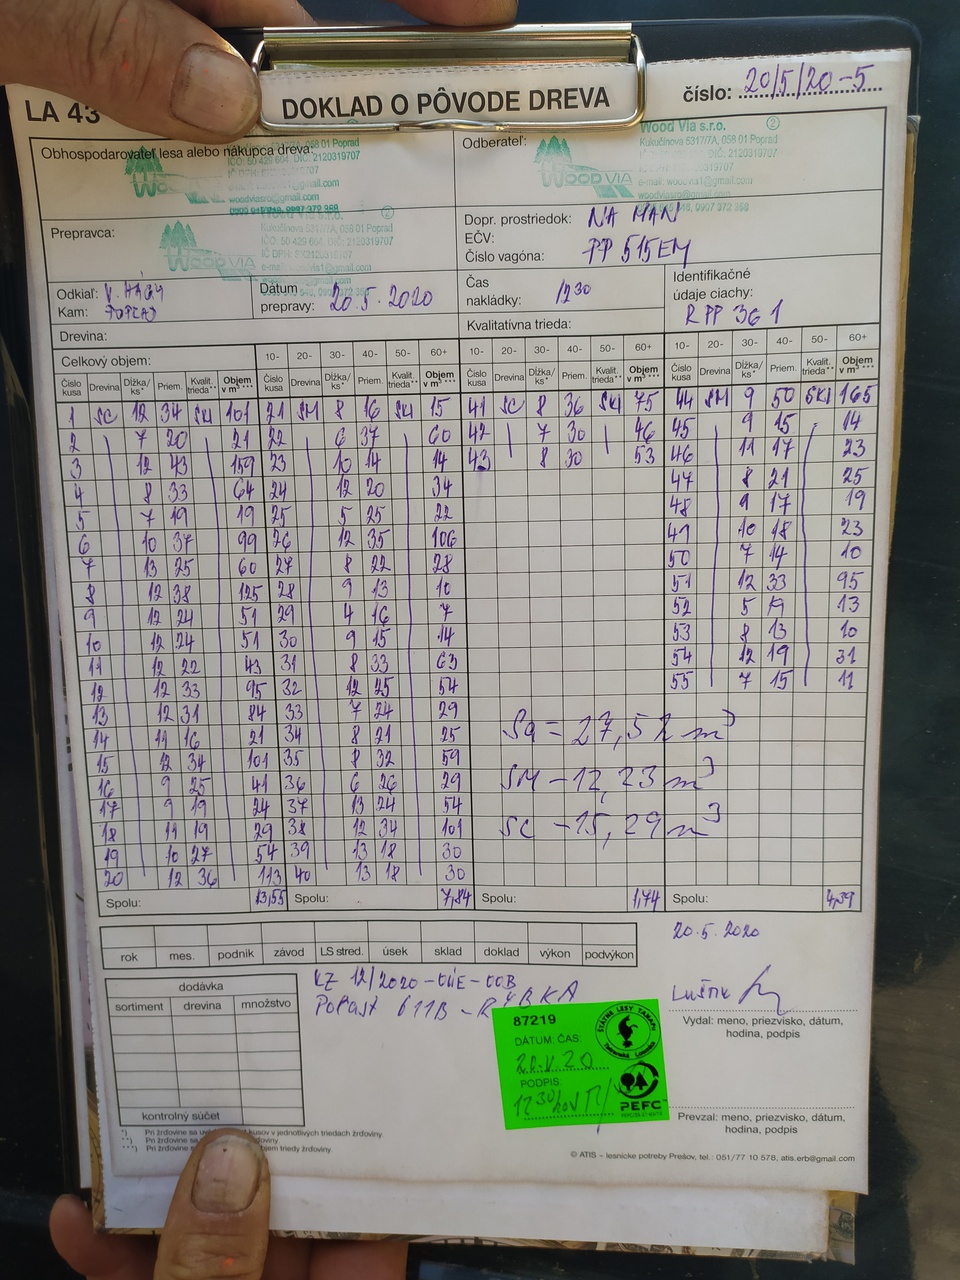 LA 43
DOKLAD O PÔVODE DREVA
číslo: 20/5/20-5
Obhospodarovateľ lesa alebo nákupca dreva:
01 Poprad
IČO: 50 429 604, DIČ: 2120319707
WOOD VIA
woodviasro@gmail.com
Odberateľ:
Wood Via s.r.o.
Kukučínova 5317/7A, 058 01 Poprad
DIČ: 2120319707
WOOD VIA
0907 372 368
Prepravca:
Kukučínova 5317/7A, 058 01 Poprad
IČO: 50 429 604, DIČ: 2120319707
WOOD VIA
Dopr. prostriedok: NA MAN
EČV:
Číslo vagóna: PP 515EM
Odkiaľ: V. HÁGY
Kam: POPRAD
Dátum prepravy: 20.5.2020
Čas nakládky: 12 30
Identifikačné údaje ciachy: RPP 361
Drevina:
Kvalitatívna trieda:
Celkový objem:
10- 20- 30- 40- 50- 60+ 10- 20- 30- 40- 50- 60+ 10- 20- 30- 40- 50- 60+
Číslo kusa Drevina Dĺžka/ks* Priem. Kvalit. trieda** Objem v m³ *** Číslo kusa Drevina Dĺžka/ks* Priem. Kvalit. trieda** Objem v m³ *** Číslo kusa Drevina Dĺžka/ks* Priem. Kvalit. trieda** Objem v m³ *** Číslo kusa Drevina Dĺžka/ks* Priem. Kvalit. trieda** Objem v m³ ***
1 SC 12 34 SKI 101 21 SM 8 16 SKI 15 41 SC 8 36 SKI 75 44 SM 9 50 SKI 165
2 7 20 21 22 6 37 60 42 7 30 46 45 9 15 14
3 12 43 159 23 10 14 14 43 8 30 53 46 11 17 23
4 8 33 64 24 12 20 34 47 8 21 25
5 7 19 19 25 5 25 22 48 9 17 19
6 10 37 99 26 12 35 106 49 10 18 23
7 13 25 60 27 8 22 28 50 7 14 10
8 12 38 125 28 9 13 10 51 12 33 95
9 12 24 51 29 4 16 7 52 5 19 13
10 12 24 51 30 9 15 14 53 8 13 10
11 12 22 43 31 8 33 63 54 12 19 31
12 12 33 95 32 12 25 54 55 7 15 11
13 12 31 84 33 7 24 29
14 11 16 21 34 8 21 25
15 12 34 101 35 8 32 59
16 9 25 41 36 6 26 29
17 9 19 24 37 13 24 54
18 11 19 29 38 12 34 101
19 10 27 54 39 13 18 30
20 12 36 113 40 13 18 30
Sa = 27,52 m³
SM - 12,23 m³
SC - 15,29 m³
Spolu: 13,55 Spolu: 7,84 Spolu: 1,74 Spolu: 4,39
20.5.2020
rok mes. podnik závod LS stred. úsek sklad doklad výkon podvýkon
dodávka
sortiment drevina množstvo
kontrolný súčet
KZ 12/2020-OÚE-OOB
Porast 611B - RYBKA
87219
DÁTUM: ČAS:
20.V.20
PODPIS:
12 30
ŠTÁTNE LESY TANAPu
Tatranská Lomnica
PEFC
Vydal: meno, priezvisko, dátum,
hodina, podpis
Prevzal: meno, priezvisko, dátum,
hodina, podpis
*) Pri žrďovine sa kusov v jednotlivých triedach žrďoviny.
**) Pri žrďovine sa
***) Pri žrďovine sa objem triedy žrďoviny.
© ATIS – lesnícke potreby Prešov, tel.: 051/77 10 578, atis.erb@gmail.com